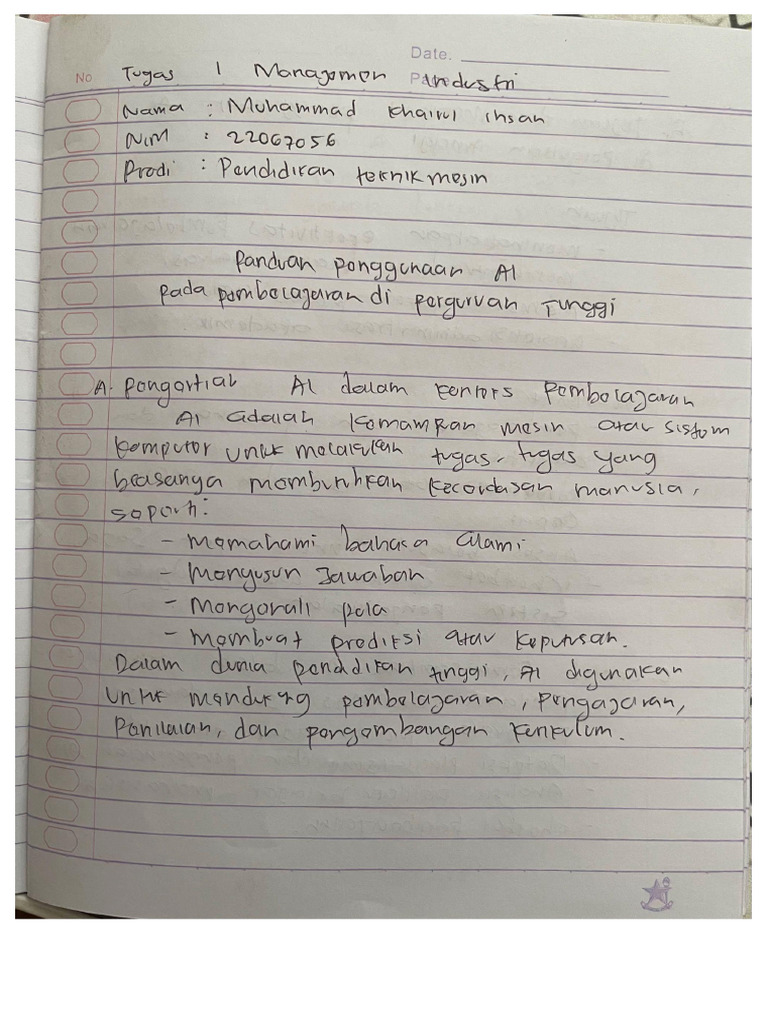 Date.
No
Tugas 1 Manajemen Industri
Nama : Muhammad Khairul ihsan
NIM : 22067056
Prodi : Pendidikan teknik mesin
Panduan Penggunaan AI
pada pembelajaran di perguruan Tinggi
A. Pengertian AI dalam konteks Pembelajaran
AI adalah Kemampuan mesin atau sistem
komputer untuk melakukan tugas-tugas yang
biasanya membutuhkan kecerdasan manusia,
seperti:
- Memahami bahasa alami
- Menyusun Jawaban
- Mengenali pola
- Membuat prediksi atau keputusan.
Dalam dunia pendidikan tinggi, AI digunakan
untuk mendukung pembelajaran, Pengajaran,
Penilaian, dan pengembangan kurikulum.